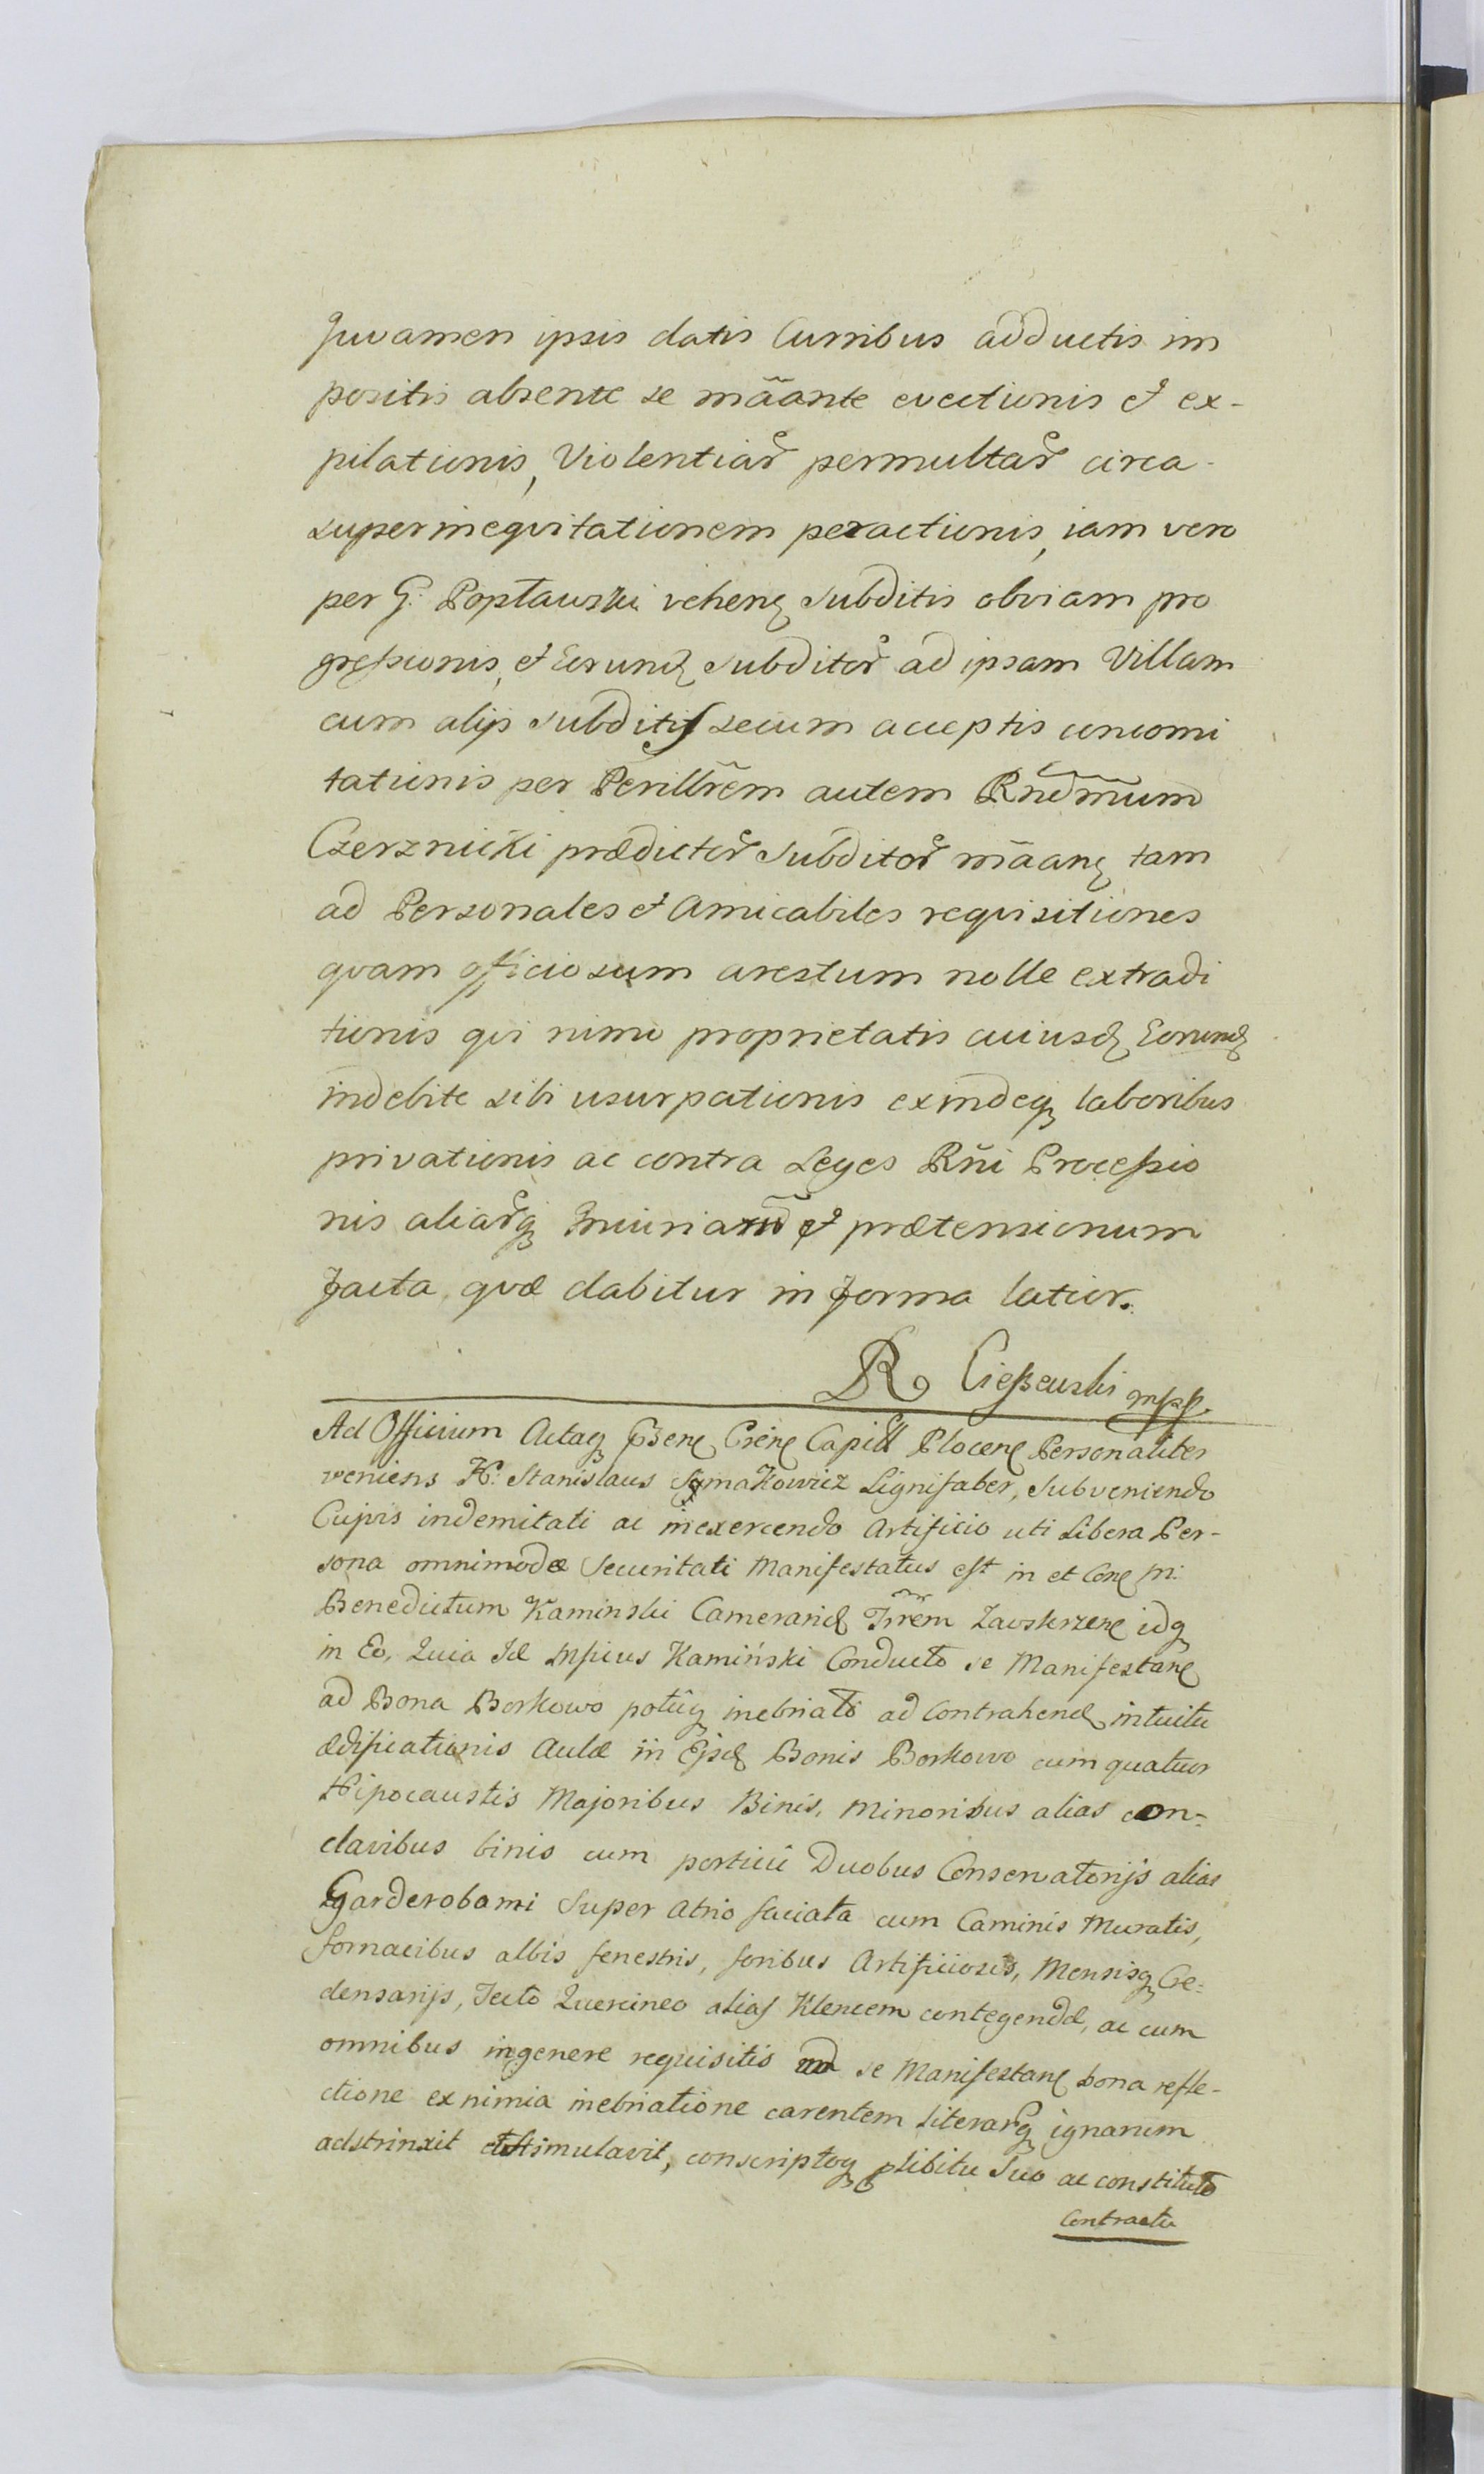 Juvamen ipsis datis Curribus adductis im
positis absente se mãante evectionis et ex-
pilationis, Violentiar permultar circa
superinequitationem peractionis, iam vero
per G: Popławski vehen subditis obviam pro
greſsionis, et Eorund subditor ad ipsam Villam
cum alijs subditis secum acceptis concomi
tationis per Perillrẽm autem Rndm̃um
Czerznicki prædictor subditor mãan tam
ad Personales et Amicabiles requisitiones
qvam officiosum arestum nolle extradi
tionis qvi nimo proprietatis cuiusd Eorund
indebite sibi usurpationis exindeq laboribus
privationis ac contra Leges Rñi Proceſsio
nis aliarq Iniuriarũ et prætensionum
facta, qvæ dabitur in forma latior.
R Cieſzewski mpp.
Ad Officium Actaq Capitl Plocen Personaliter
veniens H: Stanislaus Lignifaber, Subveniendo
Cujvis indemitati ac inexercendo Artificio uti Libera Per-
sona omnimodæ Securitati Manifestatus est in et Con M:
Benedictum Kaminski Camerarid Zawskrzen idq
in Eo, Quia Id Mficus Kamiński Conducto se Manifestan
ad Bona Borkowo potũq inebriato ad Contrahend intuitu
ædificationis Aulæ in Ejsd Bonis Borkowo cum quatuor
Hipocaustis Majoribus Binis, Minoribus alias con=
clavibus binis cum porticũ Duobus Conservatorijs alias
Garderobami Super Atrio faciata cum Caminis Muratis,
fornacibus albis fenestris, foribus Artificiosis, Mensisq Cre=
densarijs, Tecto Quercineo alias Klencem contegendæ, ac cum
omnibus ingenere requisitis se Manifestan bona refle-
ctione ex nimia inebriatione carentem Literarq ignarum
adstrinxit et stimulavit, conscriptoq plibitu Suo ac constituto
Contractu